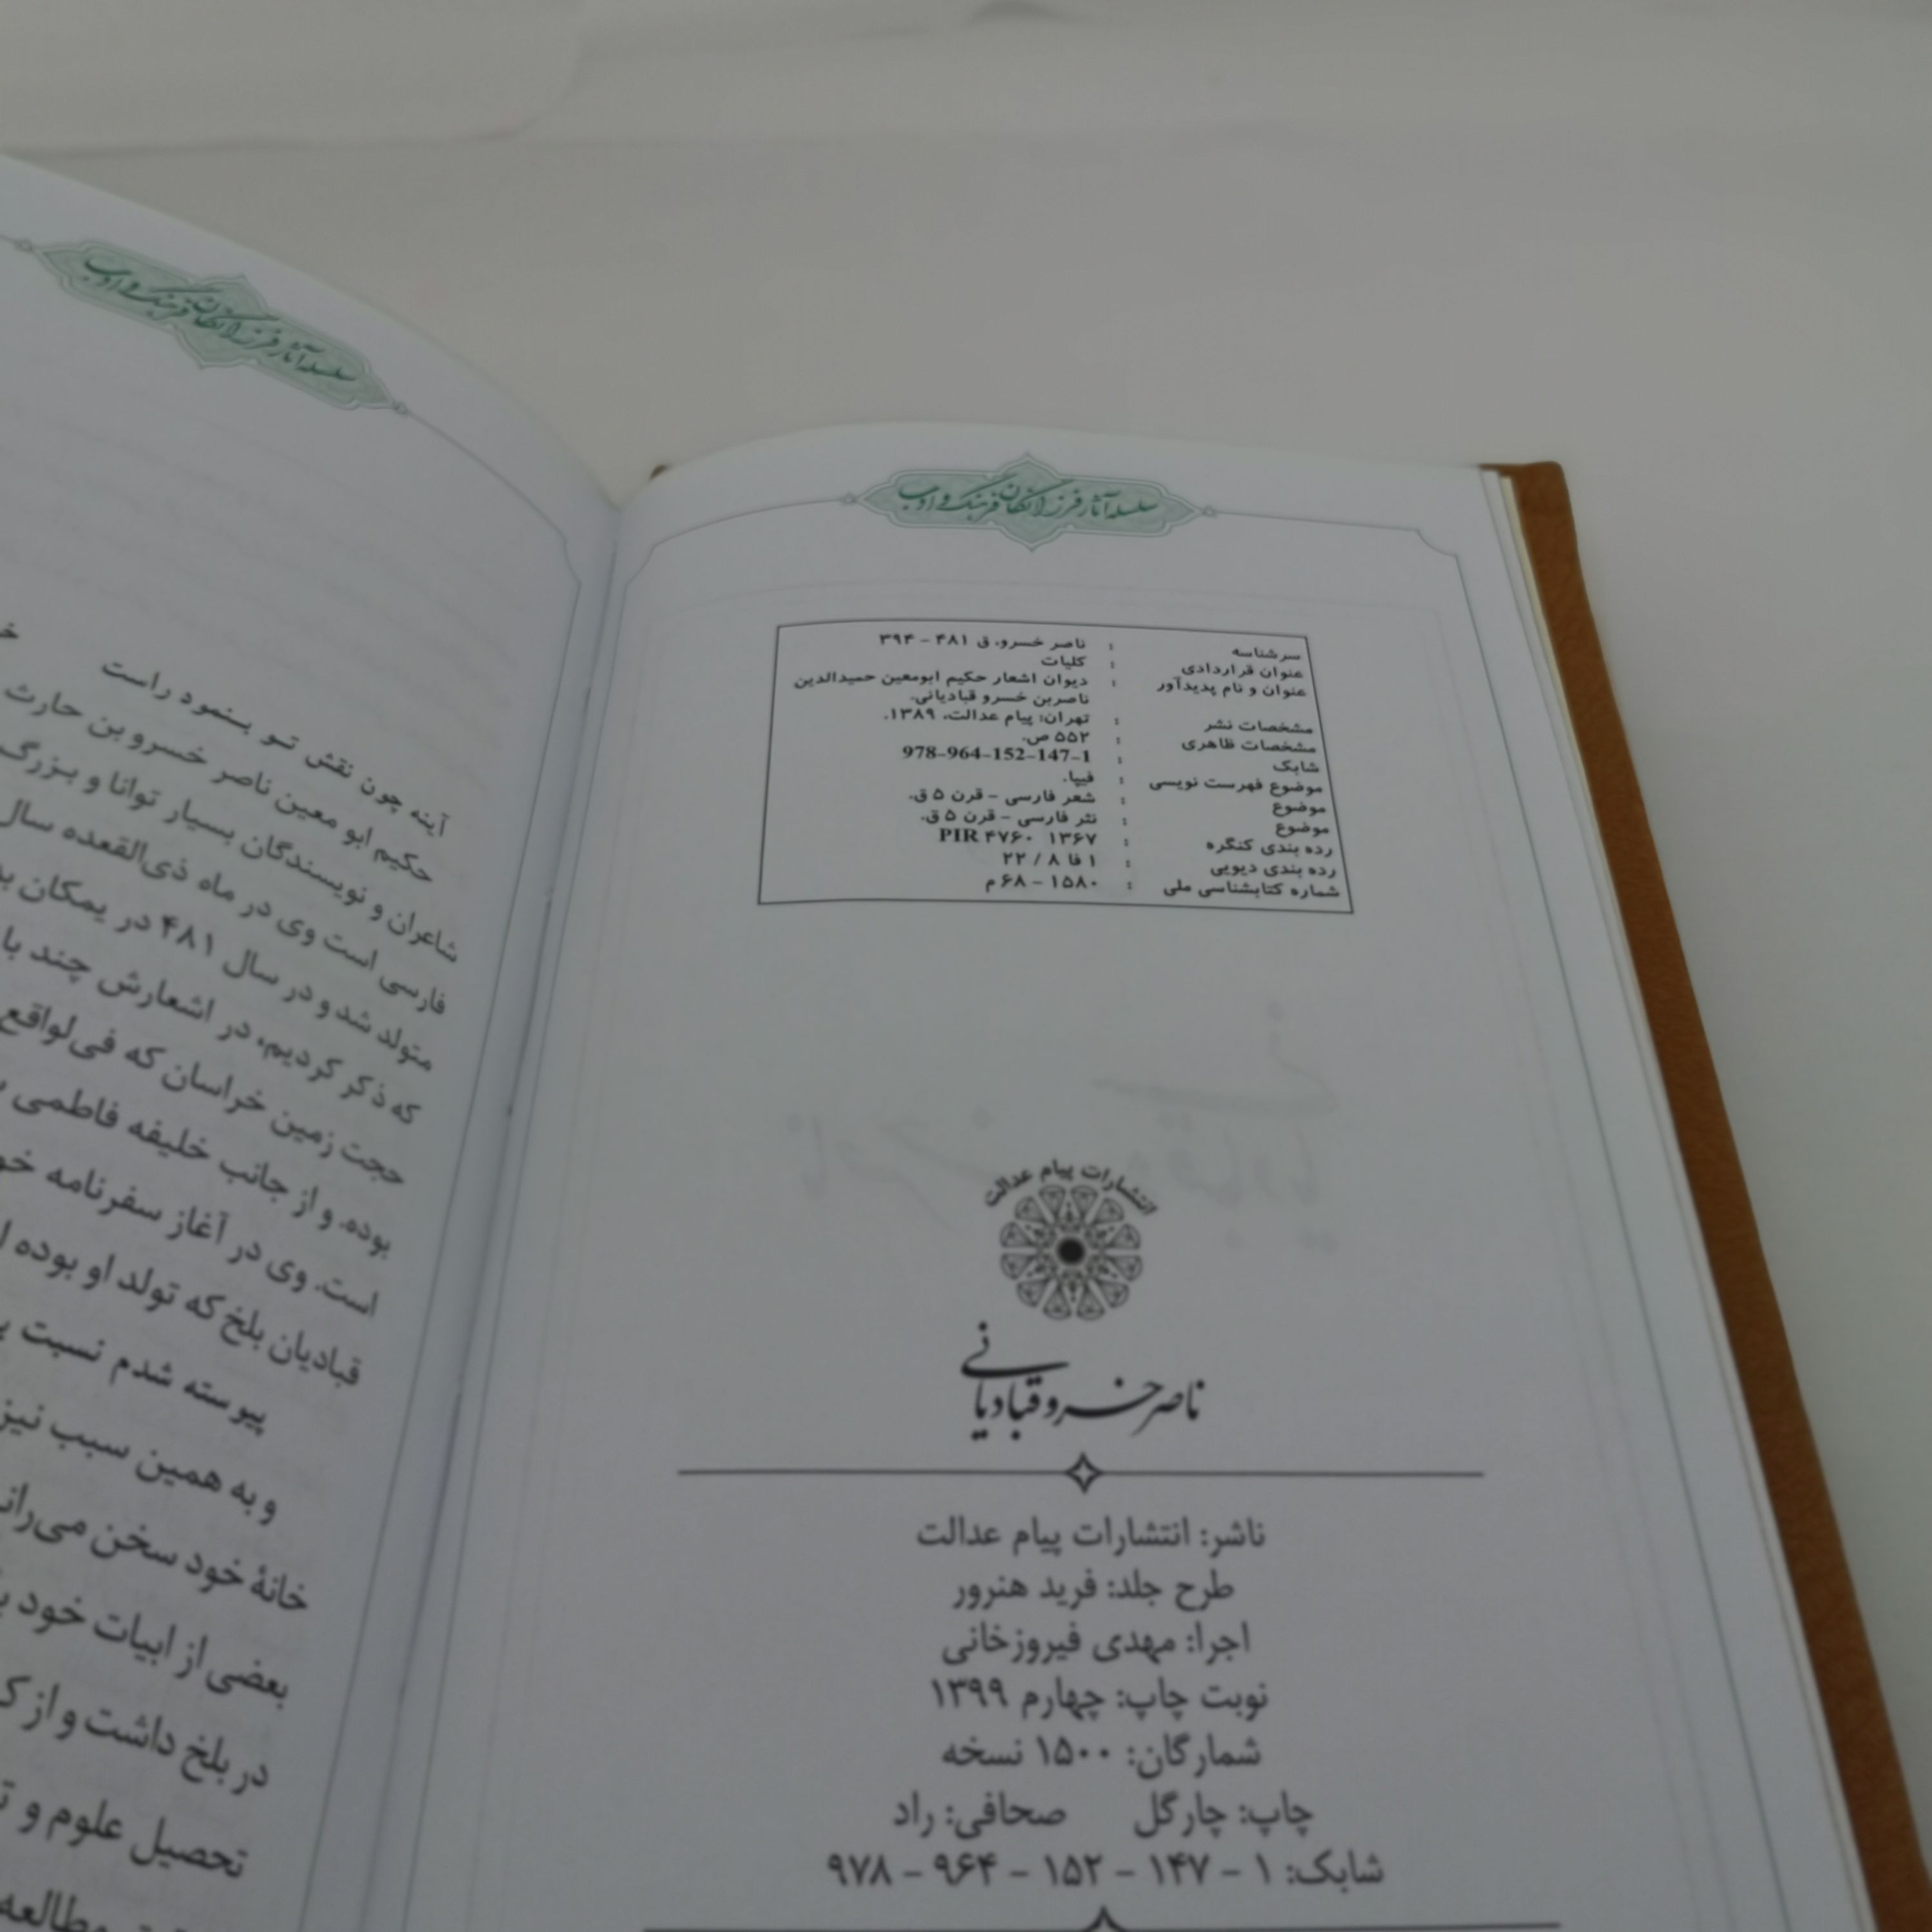 سلسله آثار فرزانگان فرهنگ و ادب
سرشناسه : ناصر خسرو، ق ۴۸۱ - ۳۹۴
عنوان قراردادی : کلیات
عنوان و نام پدیدآور : دیوان اشعار حکیم ابومعین حمیدالدین
ناصربن خسرو قبادیانی.
مشخصات نشر : تهران: پیام عدالت، ۱۳۸۹.
مشخصات ظاهری : ۵۵۲ ص.
شابک : 978-964-152-147-1
موضوع فهرست نویسی : فیپا.
موضوع : شعر فارسی - قرن ۵ ق.
موضوع : نثر فارسی - قرن ۵ ق.
رده بندی کنگره : PIR ۴۷۶۰ ۱۳۶۷
رده بندی دیویی : ۱ فا ۸ / ۲۲
شماره کتابشناسی ملی : ۱۵۸۰ - ۶۸ م
انتشارات پیام عدالت
ناصر خسرو قبادیانی
ناشر: انتشارات پیام عدالت
طرح جلد: فرید هنرور
اجرا: مهدی فیروزخانی
نوبت چاپ: چهارم ۱۳۹۹
شمارگان: ۱۵۰۰ نسخه
چاپ: چارگل صحافی: راد
شابک: ۱ - ۱۴۷ - ۱۵۲ - ۹۶۴ - ۹۷۸
سلسله آثار فرزانگان فرهنگ و ادب
آینه چون نقش تو بنمود راست
حکیم ابو معین ناصر خسرو بن حارث
شاعران و نویسندگان بسیار توانا و بزرگ
فارسی است وی در ماه ذی‌القعده سال
متولد شد و در سال ۴۸۱ در یمکان
که ذکر کردیم، در اشعارش چند
حجت زمین خراسان که فی‌لواقع
بوده. و از جانب خلیفه فاطمی
است. وی در آغاز سفرنامه
قبادیان بلخ که تولد او بوده
پیوسته شدم نسبت
و به همین سبب نیز
خانهٔ خود سخن
بعضی از ابیات خود
در بلخ داشت و از
تحصیل علوم و
مطالعه